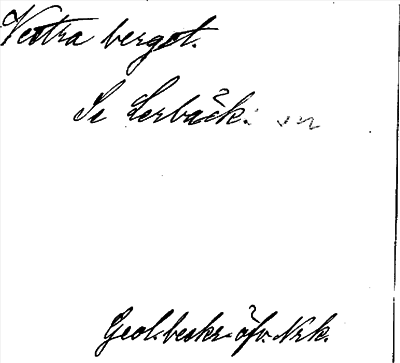 Vestra berget.
Se Lerbäck.
Geol. beskr. öfv. Nrk.